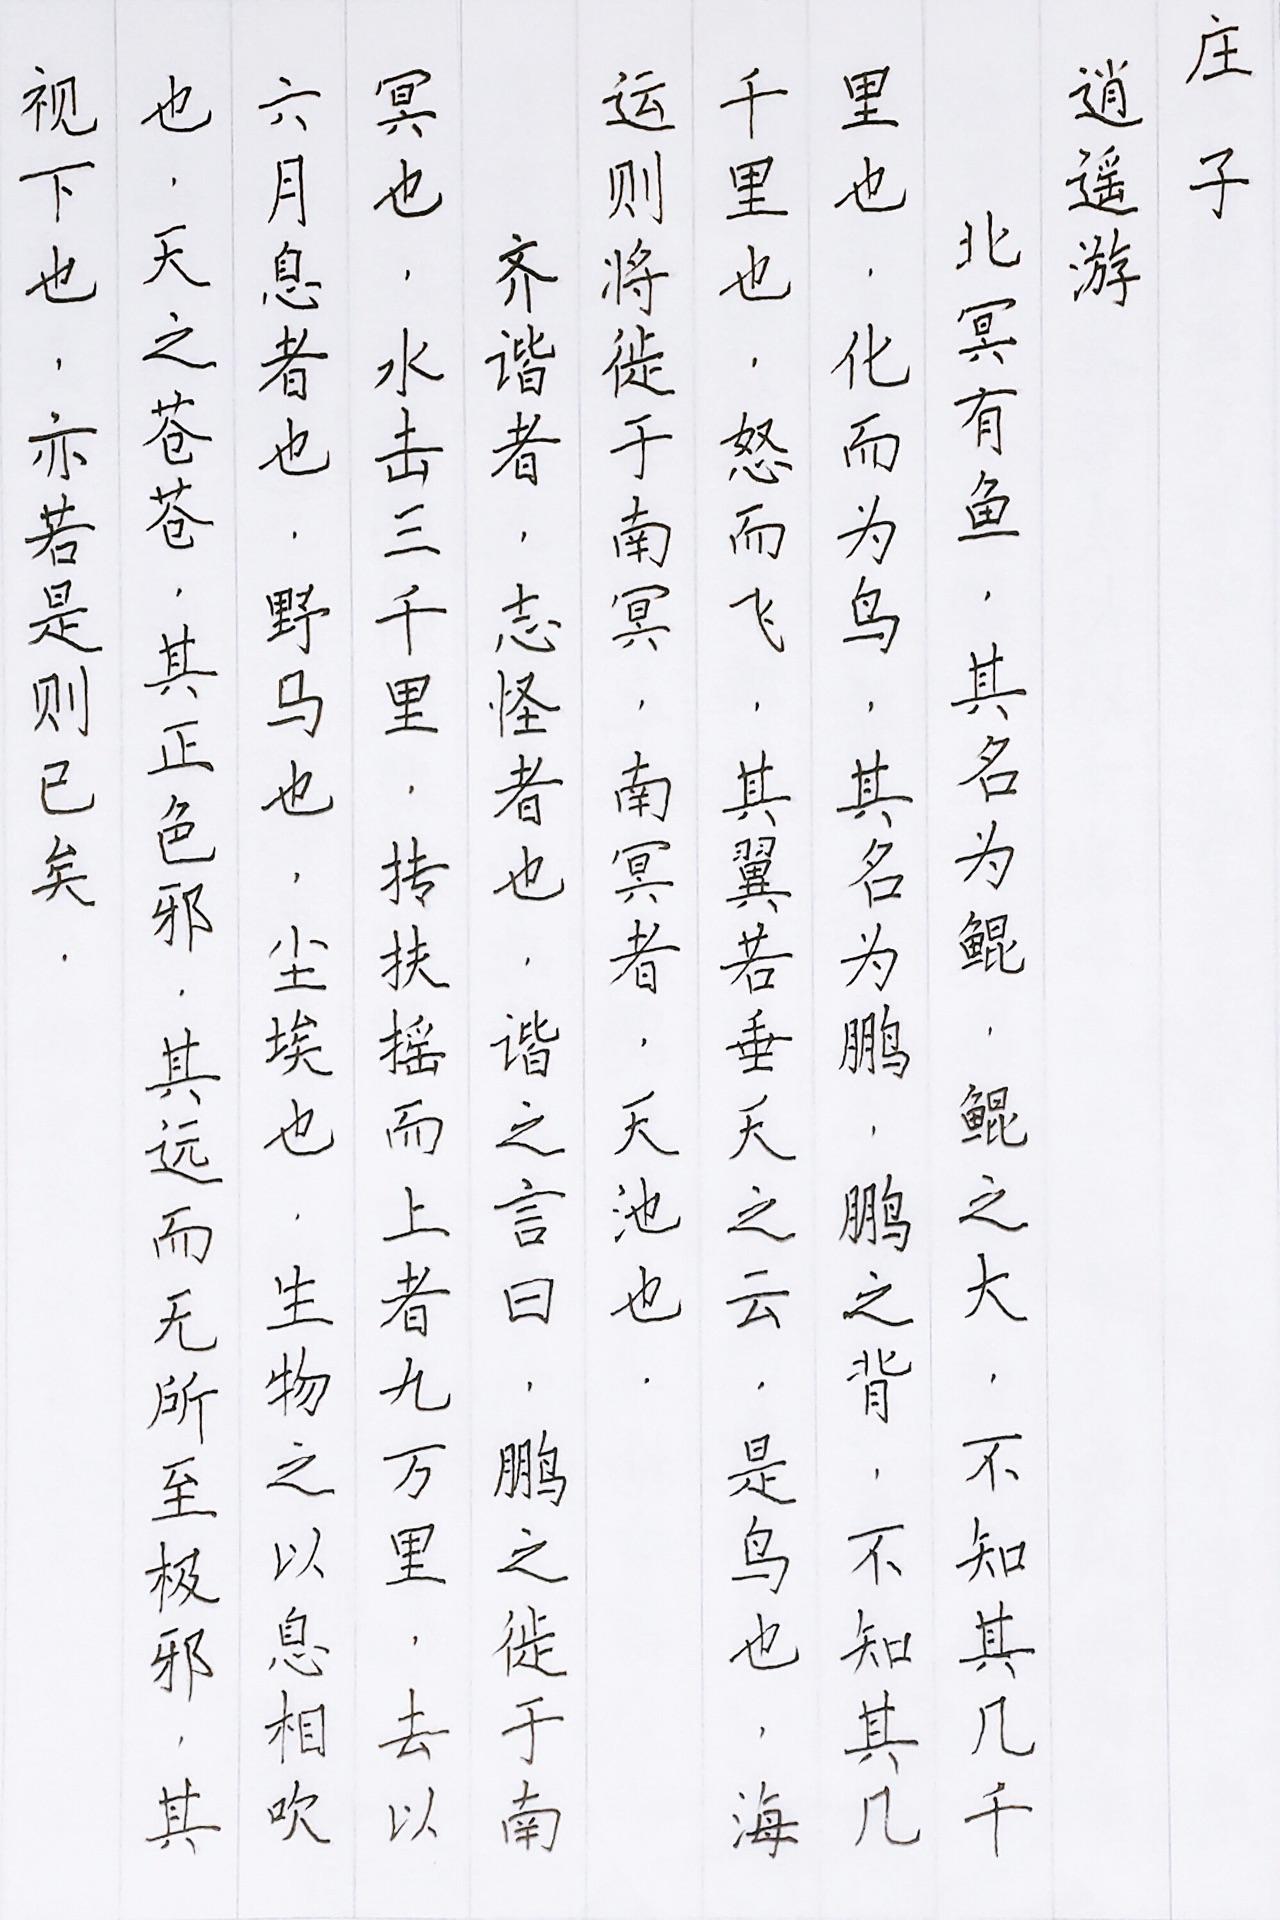 庄子
逍遥游
北冥有鱼，其名为鲲，鲲之大，不知其几千
里也，化而为鸟，其名为鹏，鹏之背，不知其几
千里也，怒而飞，其翼若垂天之云，是鸟也，海
运则将徙于南冥，南冥者，天池也．
齐谐者，志怪者也，谐之言曰，鹏之徙于南
冥也，水击三千里，抟扶摇而上者九万里，去以
六月息者也，野马也，尘埃也，生物之以息相吹
也，天之苍苍，其正色邪，其远而无所至极邪，其
视下也，亦若是则已矣．